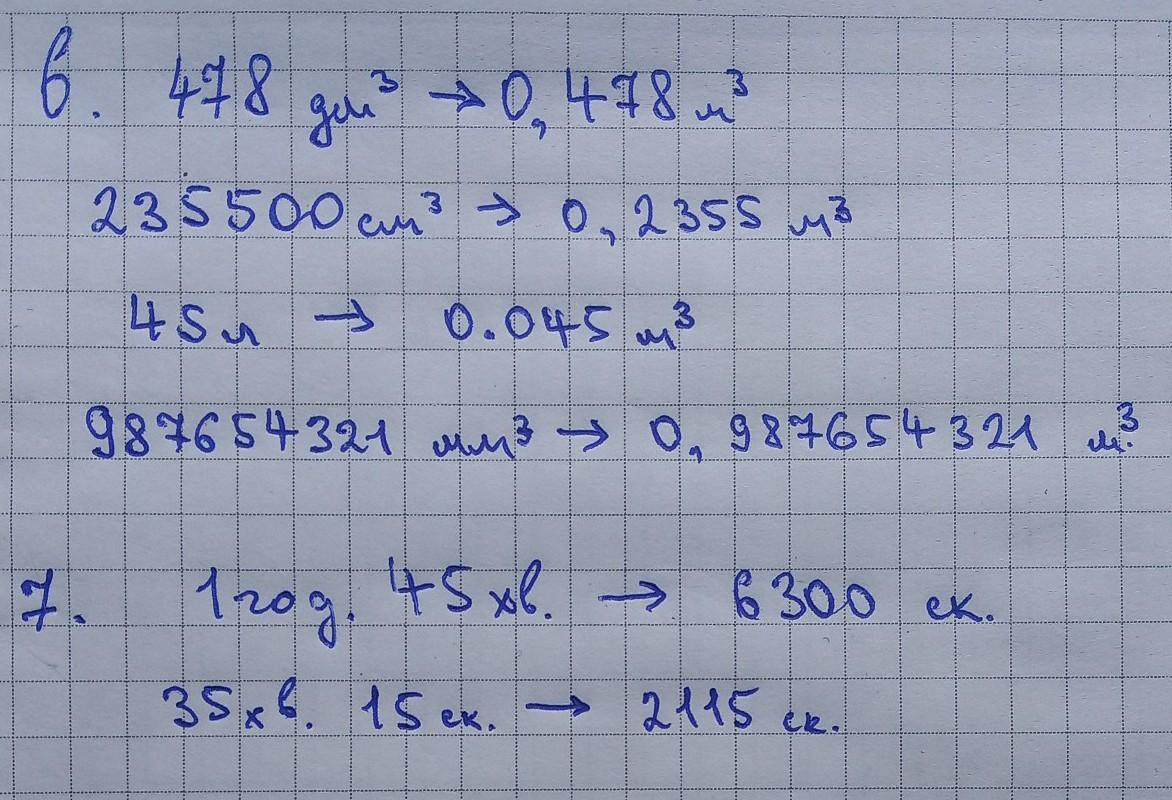 6. 478 дм³ → 0,478 м³
235500 см³ → 0,2355 м³
45 л → 0.045 м³
987654321 мм³ → 0,987654321 м³
7. 1 год. 45 хв. → 6300 ск.
35 хв. 15 ск. → 2115 ск.